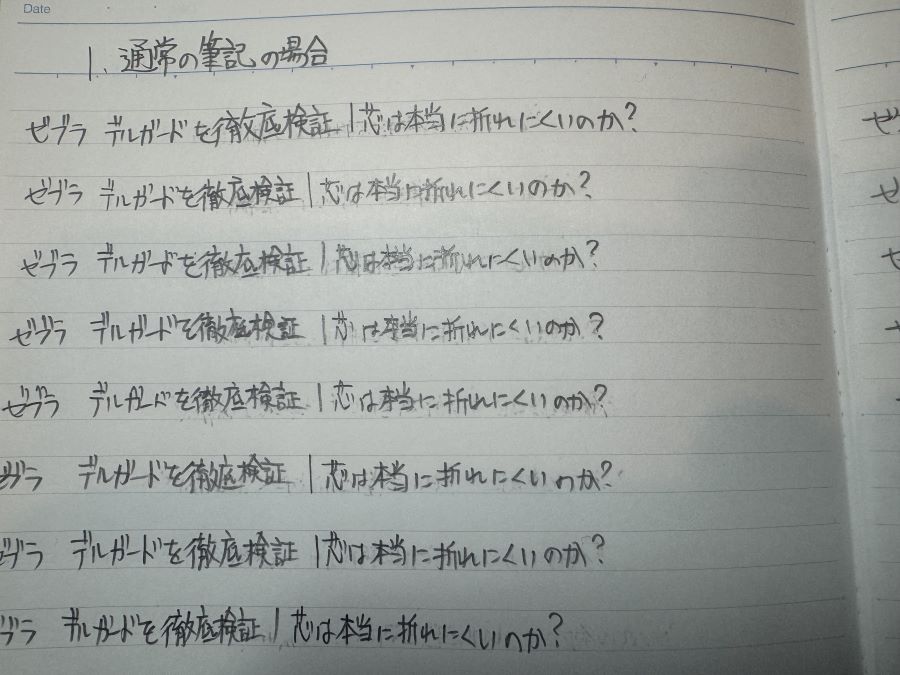 Date
1. 通常の筆記の場合
ゼブラ デルガードを徹底検証|芯は本当に折れにくいのか?
ゼブラ デルガードを徹底検証|芯は本当に折れにくいのか?
ゼブラ デルガードを徹底検証|芯は本当に折れにくいのか?
ゼブラ デルガードを徹底検証|芯は本当に折れにくいのか?
ゼブラ デルガードを徹底検証|芯は本当に折れにくいのか?
ゼブラ デルガードを徹底検証|芯は本当に折れにくいのか?
ゼブラ デルガードを徹底検証|芯は本当に折れにくいのか?
ブラ デルガードを徹底検証|芯は本当に折れにくいのか?